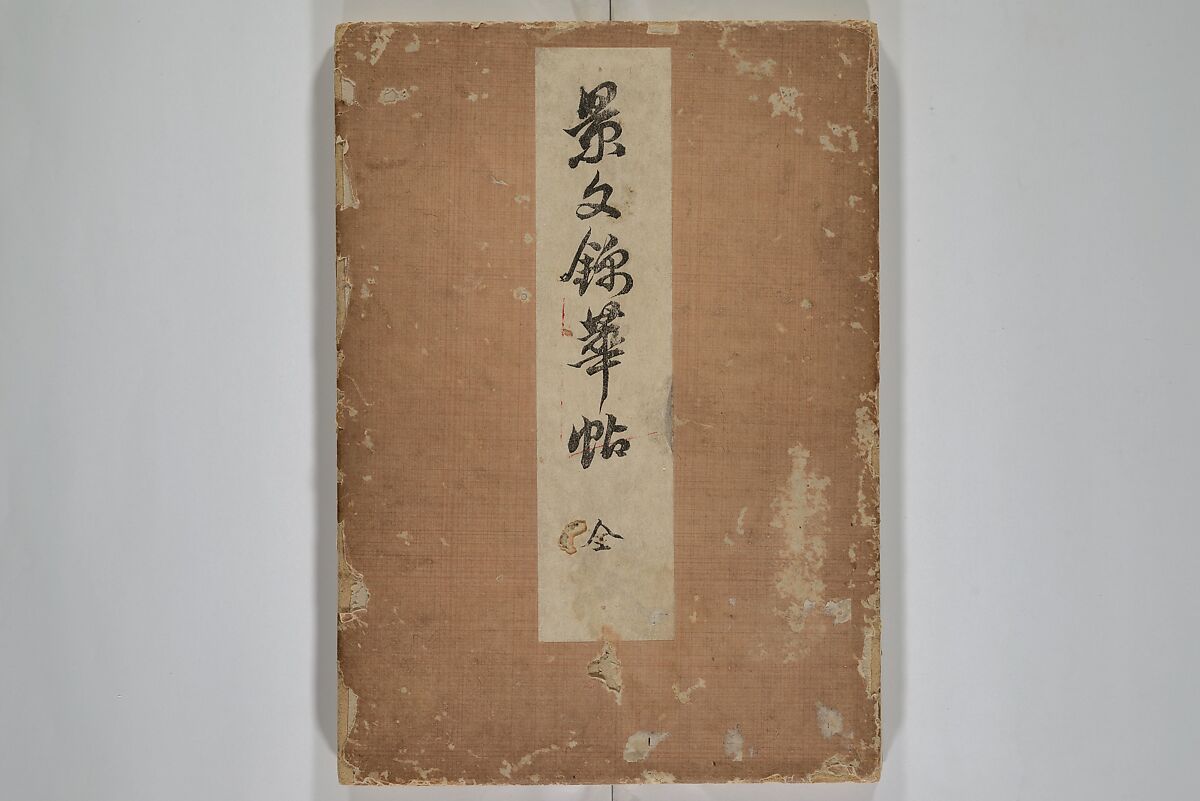 景文錦華帖 全